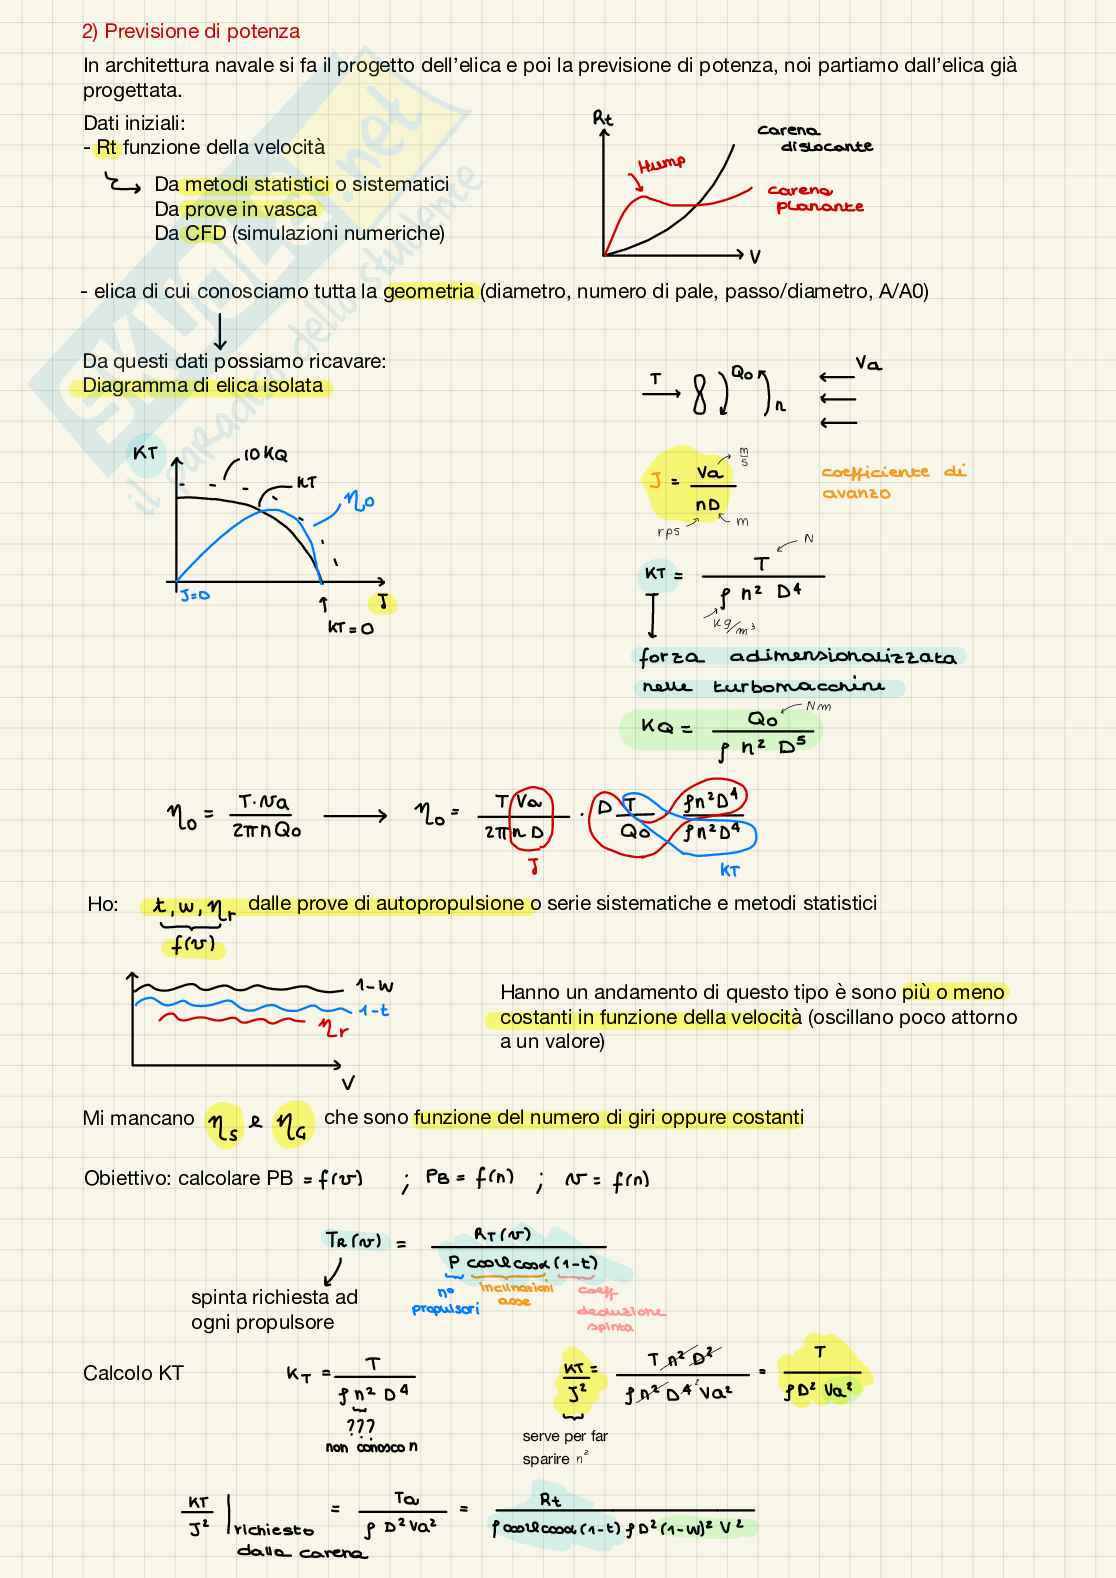 2) Previsione di potenza
In architettura navale si fa il progetto dell'elica e poi la previsione di potenza, noi partiamo dall'elica già
progettata.
Dati iniziali:
- Rt funzione della velocità
Da metodi statistici o sistematici
Da prove in vasca
Da CFD (simulazioni numeriche)
Rt
carena
dislocante
Hump
carena
planante
V
- elica di cui conosciamo tutta la geometria (diametro, numero di pale, passo/diametro, A/A0)
Da questi dati possiamo ricavare:
Diagramma di elica isolata
T Q0 n Va
KT
10KQ
KT
η0
J=0
J
KT=0
J = Va / nD
m/s
rps
m
coefficiente di
avanzo
KT = T / ρ n² D⁴
N
kg/m³
forza adimensionalizzata
nelle turbomacchine
KQ = Q0 / ρ n² D⁵
Nm
η0 = T·Va / 2πnQ0 → η0 = T Va / 2πnD · D T / Q0 ρn²D⁴ / ρn²D⁴
J
KT
Ho: t, w, ηr dalle prove di autopropulsione o serie sistematiche e metodi statistici
f(v)
1-w
1-t
ηr
V
Hanno un andamento di questo tipo è sono più o meno
costanti in funzione della velocità (oscillano poco attorno
a un valore)
Mi mancano ηs e ηG che sono funzione del numero di giri oppure costanti
Obiettivo: calcolare PB = f(v) ; PB = f(n) ; v = f(n)
TR(v) = RT(v) / P cosψcosα (1-t)
n° propulsori
inclinazioni
asse
coeff
deduzione
spinta
spinta richiesta ad
ogni propulsore
Calcolo KT
KT = T / ρ n² D⁴
???
non conosco n
KT/J² = T n² D² / ρ n² D⁴ ² Va² = T / ρD² Va²
serve per far
sparire n²
KT/J² | richiesto
dalla carena
= Ta / ρ D² Va² = Rt / ρ cosψcosα (1-t) ρD² (1-w)² V²
SKUOLA.net
il paradiso dello studente